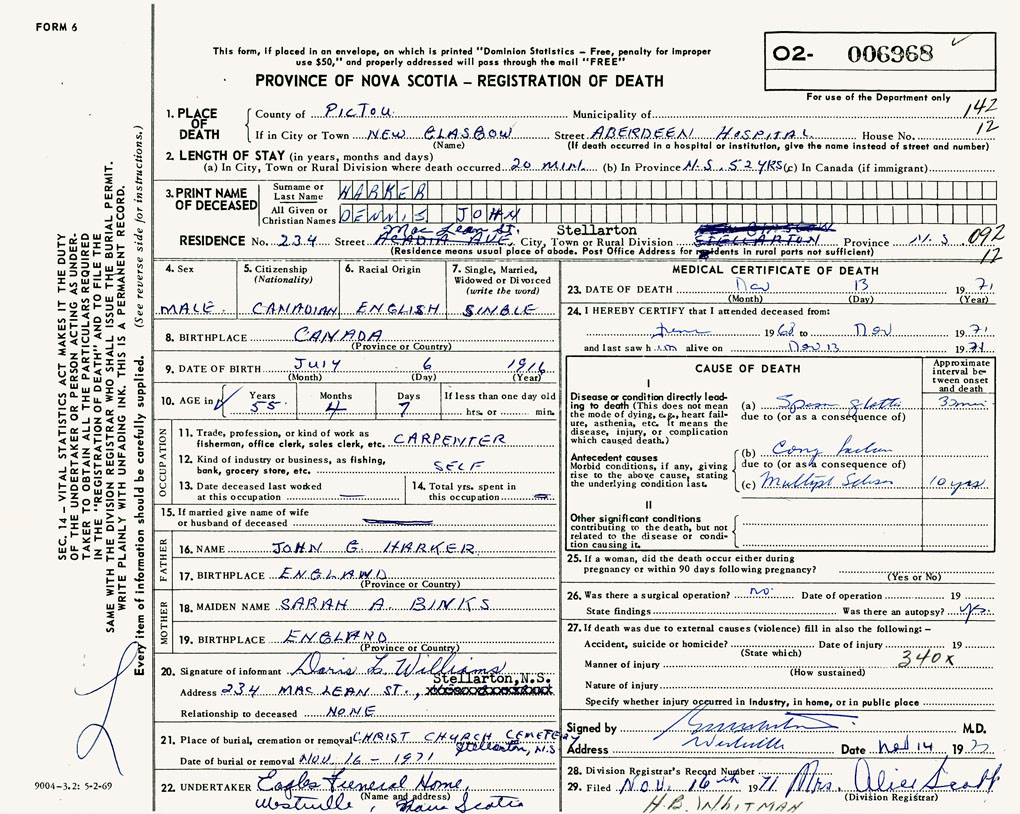 FORM 6
This form, if placed in an envelope, on which is printed "Dominion Statistics – Free, penalty for improper
use $50," and properly addressed will pass through the mail "FREE"
PROVINCE OF NOVA SCOTIA – REGISTRATION OF DEATH
02- 006968
For use of the Department only
142
12
1. PLACE OF DEATH
County of PICTOU Municipality of
If in City or Town NEW GLASGOW Street ABERDEEN HOSPITAL House No.
(Name) (If death occurred in a hospital or institution, give the name instead of street and number)
2. LENGTH OF STAY (in years, months and days)
(a) In City, Town or Rural Division where death occurred 20 MIN. (b) In Province N.S. 52 YRS (c) In Canada (if immigrant)
3. PRINT NAME OF DECEASED
Surname or Last Name HARKER
All Given or Christian Names DENNIS JOHN
Mac Lean St. Stellarton
RESIDENCE No. 234 Street ACADIA AVE, City, Town or Rural Division STELLARTON Province N.S. 092
12
(Residence means usual place of abode. Post Office Address for residents in rural parts not sufficient)
4. Sex
MALE
5. Citizenship
(Nationality)
CANADIAN
6. Racial Origin
ENGLISH
7. Single, Married,
Widowed or Divorced
(write the word)
SINGLE
8. BIRTHPLACE CANADA
(Province or Country)
9. DATE OF BIRTH JULY 6 1916
(Month) (Day) (Year)
10. AGE in Years 55 Months 4 Days 7 If less than one day old
hrs. or min.
OCCUPATION
11. Trade, profession, or kind of work as
fisherman, office clerk, sales clerk, etc. CARPENTER
12. Kind of industry or business, as fishing,
bank, grocery store, etc. SELF
13. Date deceased last worked
at this occupation —
14. Total yrs. spent in
this occupation
15. If married give name of wife
or husband of deceased
FATHER
16. NAME JOHN G. HARKER
17. BIRTHPLACE ENGLAND
(Province or Country)
MOTHER
18. MAIDEN NAME SARAH A. BINKS
19. BIRTHPLACE ENGLAND
(Province or Country)
20. Signature of informant Doris L. Williams
Stellarton, N.S.
Address 234 MAC LEAN ST.,
Relationship to deceased NONE
21. Place of burial, cremation or removal CHRIST CHURCH CEMETERY
Stellarton, N.S.
Date of burial or removal NOV. 16 – 1971
22. UNDERTAKER Eagles Funeral Home,
(Name and address)
Westville, Nova Scotia
MEDICAL CERTIFICATE OF DEATH
23. DATE OF DEATH Nov 13 1971
(Month) (Day) (Year)
24. I HEREBY CERTIFY that I attended deceased from:
June 1968 to Nov 1971
and last saw him alive on Nov 13 1971
CAUSE OF DEATH
Approximate
interval be-
tween onset
and death
I
Disease or condition directly lead-
ing to death (This does not mean
the mode of dying, e.g., heart fail-
ure, asthenia, etc. It means the
disease, injury, or complication
which caused death.)
(a)
due to (or as a consequence of)
Antecedent causes
Morbid conditions, if any, giving
rise to the above cause, stating
the underlying condition last.
(b)
due to (or as a consequence of)
(c) 10 yrs.
II
Other significant conditions
contributing to the death, but not
related to the disease or condi-
tion causing it.
25. If a woman, did the death occur either during
pregnancy or within 90 days following pregnancy?
(Yes or No)
26. Was there a surgical operation? no Date of operation 19
State findings Was there an autopsy? yes
27. If death was due to external causes (violence) fill in also the following: –
Accident, suicide or homicide? Date of injury 19
(State which) 340x
Manner of injury
(How sustained)
Nature of injury
Specify whether injury occurred in industry, in home, or in public place
Signed by M.D.
Address Westville Date Nov 14 19
28. Division Registrar's Record Number
29. Filed Nov. 16th 1971 Mrs. Alice Scott
(Division Registrar)
H.B. WHITMAN
SEC. 14 – VITAL STATISTICS ACT MAKES IT THE DUTY
OF THE UNDERTAKER OR PERSON ACTING AS UNDER-
TAKER TO OBTAIN ALL THE PARTICULARS REQUIRED
IN THE "REGISTRATION OF DEATH" AND TO FILE THE
SAME WITH THE DIVISION REGISTRAR WHO SHALL ISSUE THE BURIAL PERMIT.
WRITE PLAINLY WITH UNFADING INK. THIS IS A PERMANENT RECORD.
Every item of information should be carefully supplied. (See reverse side for instructions.)
9004-3.2: 5-2-69